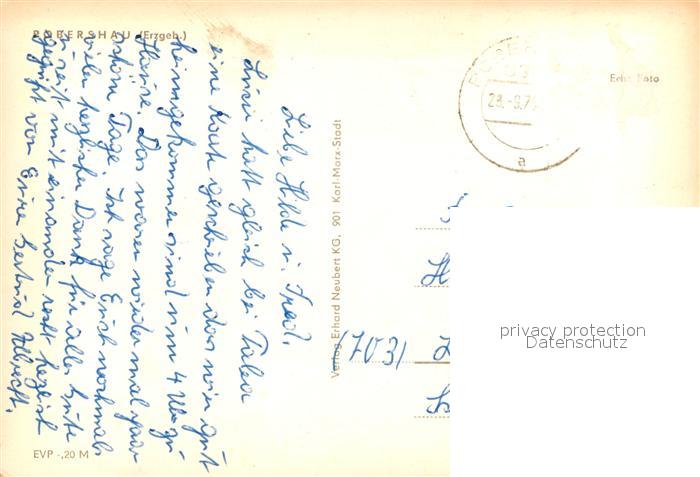 POBERSHAU (Erzgeb.)
Liebe Hilde u. Fred,
Luzie hatt gleich bei Tabea
eine Karte geschrieben das wir gut
heimgekommen sind um 4 Uhr zu
Hause. Das waren wieder mal paar
schöne Tage. Ich sage Euch nochmals
vielen herzlichen Dank für alles Gute
u. seit mit einander recht herzlich
gegrüßt von Eurer Gertrud Albrecht.
EVP -,20 M
Verlag Erhard Neubert KG, 901 Karl-Marx-Stadt
Echt Foto
POBER
a
(703)
privacy protection
Datenschutz